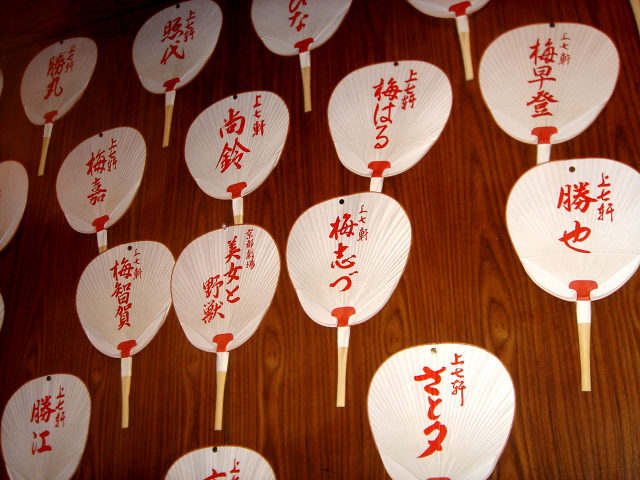 上七軒
勝丸
上七軒
照代
上七軒
ひな
上七軒
梅早登
上七軒
梅嘉
上七軒
尚鈴
上七軒
梅はる
上七軒
勝也
上七軒
梅智賀
京都劇場
美女と
野獣
上七軒
梅志づ
上七軒
勝江
上七軒
上七軒
さと夕